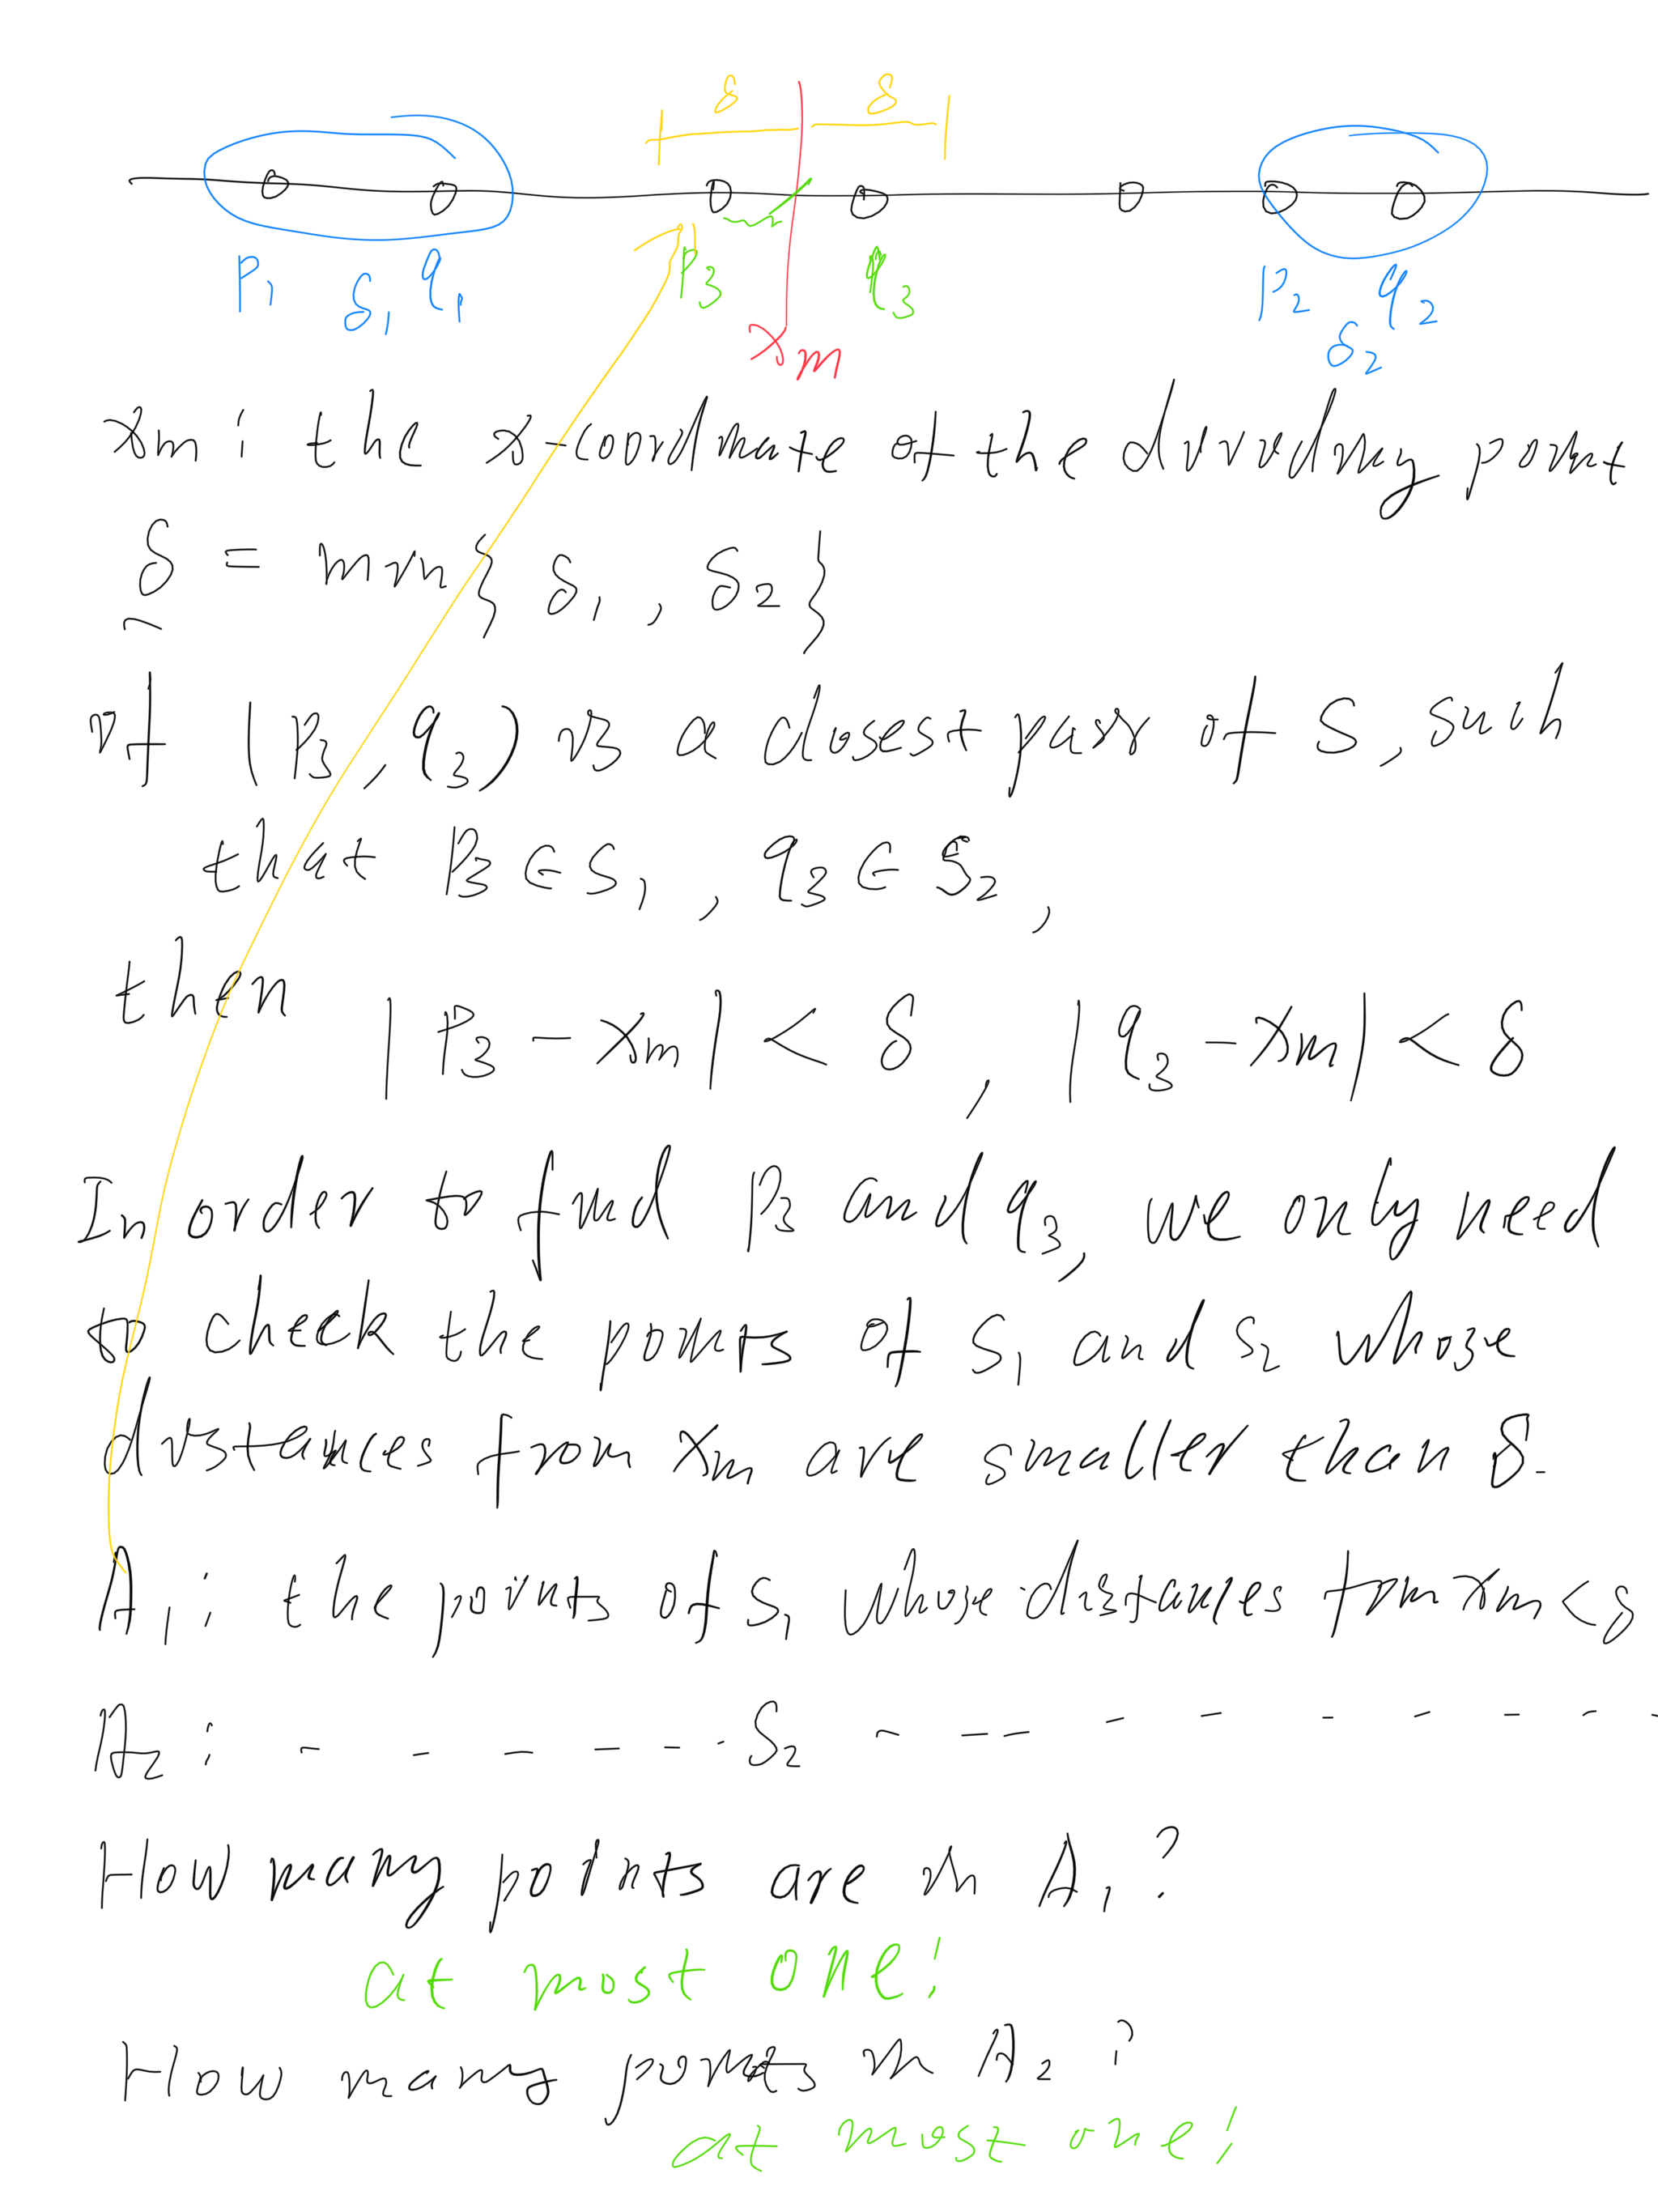 δ δ
p₁ δ₁ q₁ p₃ q₃ p₂ q₂
xm δ₂
xm : the x-coordinate of the dividing point
δ = min{ δ₁ , δ₂ }
if (p₃, q₃) is a closest pair of S, such
that p₃ ∈ S₁ , q₃ ∈ S₂ ,
then |p₃ - xm| < δ , |q₃ - xm| < δ
In order to find p₃ and q₃, we only need
to check the points of S₁ and S₂ whose
distances from xm are smaller than δ.
A₁ : the points of S₁ whose distances from xm < δ
A₂ : - - - - - - S₂ - - - - - - - - - -
How many points are in A₁ ?
at most one!
How many points in A₂ ?
at most one!